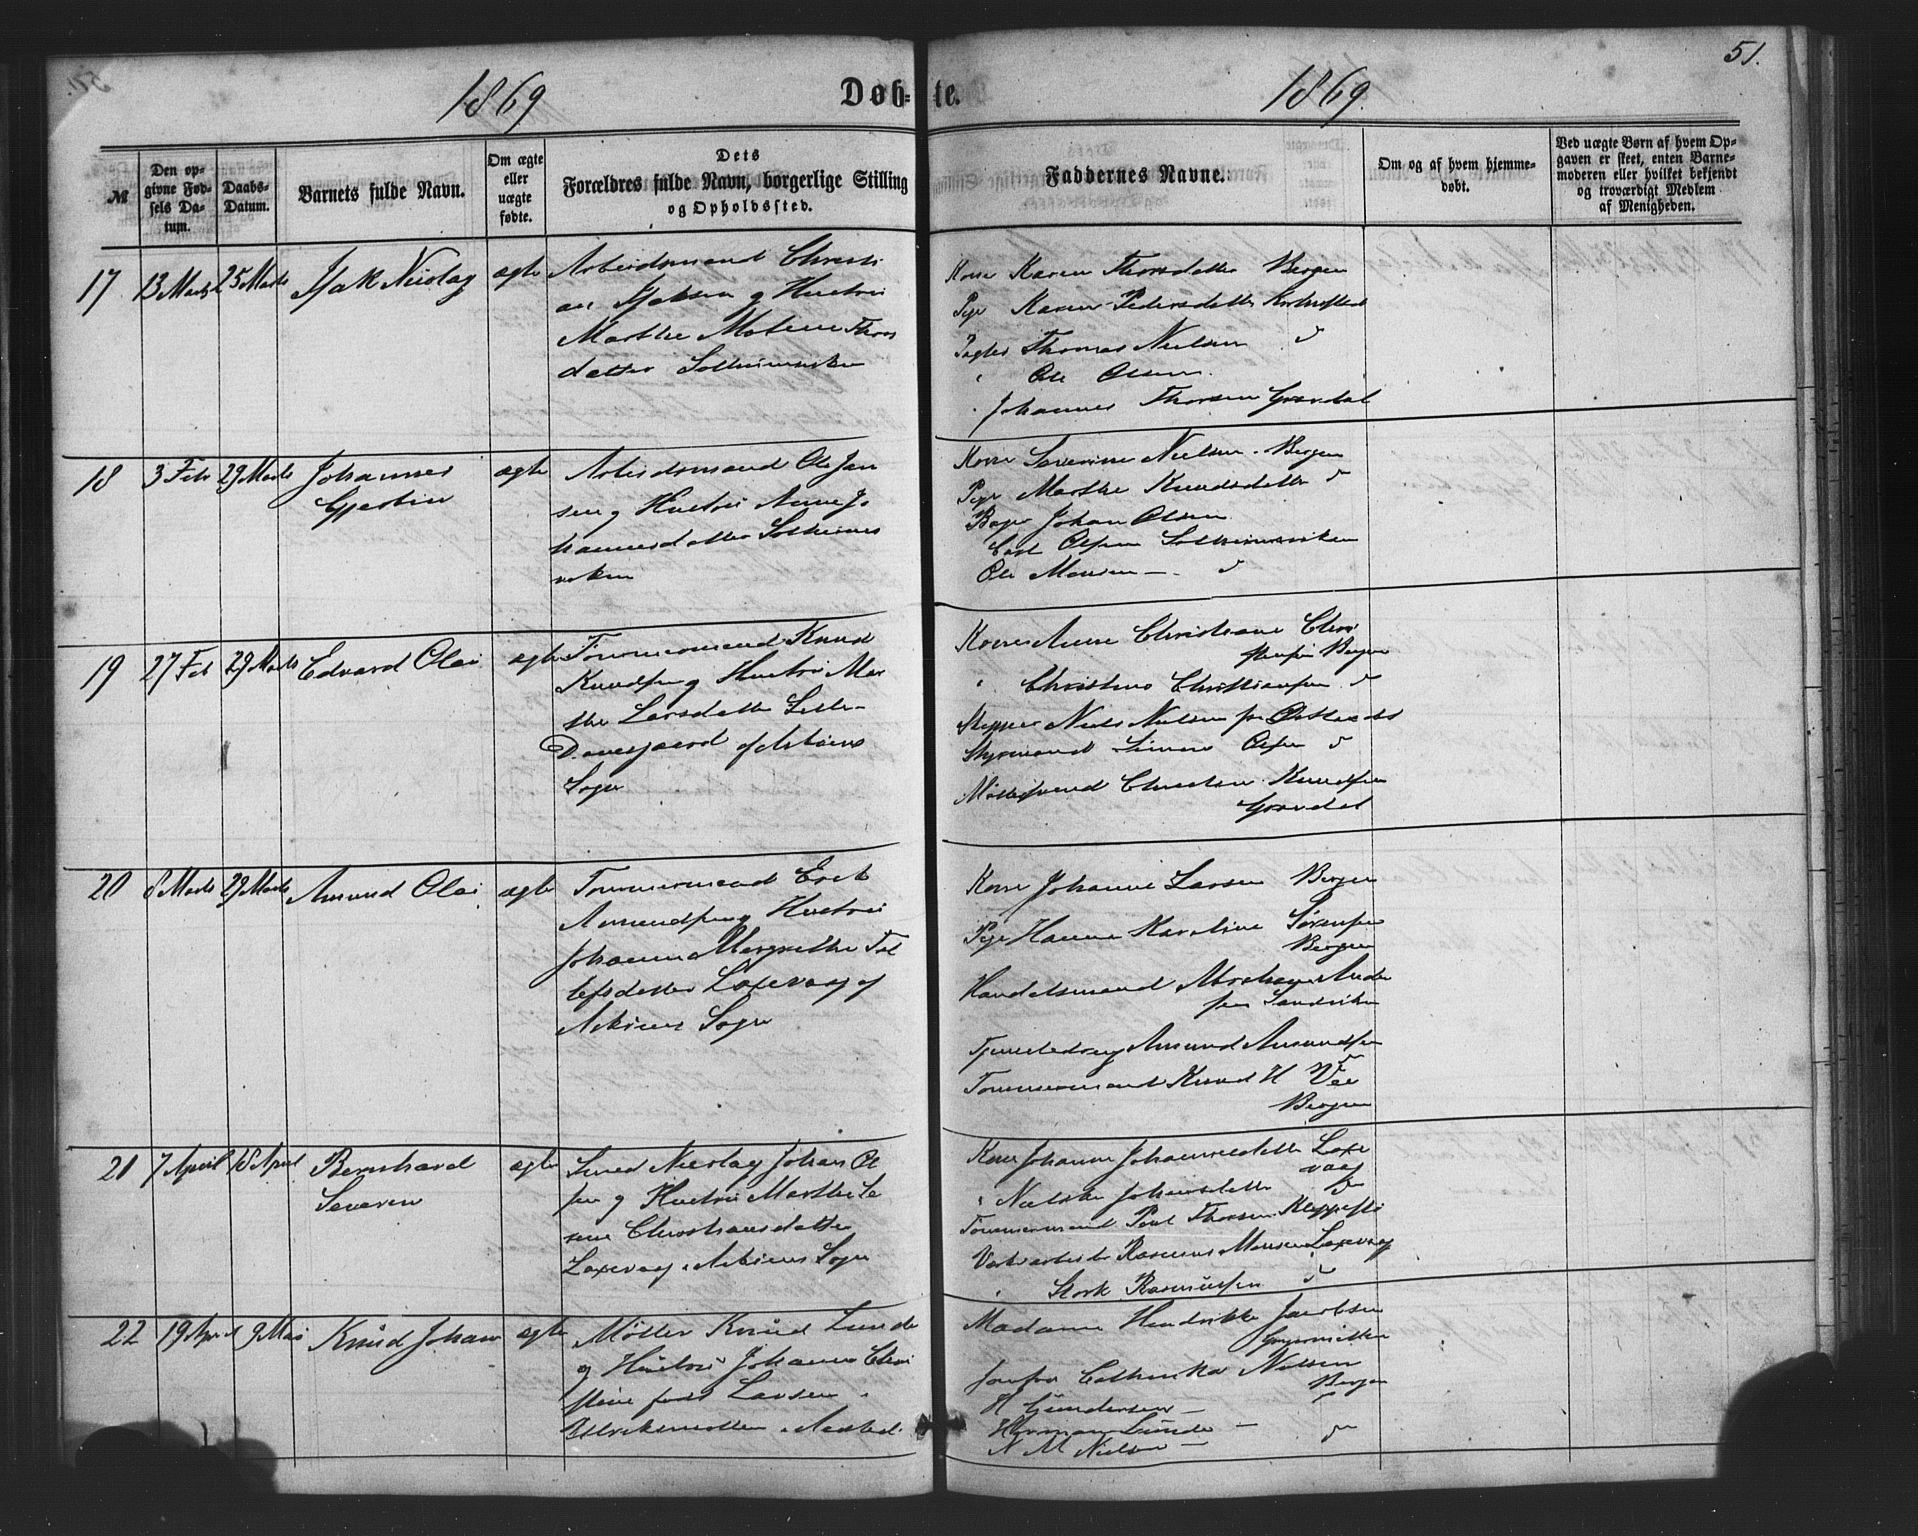 51.
1869
Døb-te.
1869.
№
Den opgivne Fødsels Datum.
Daabs-Datum.
Barnets fulde Navn.
Om ægte eller uægte fødte.
Dets Forældres fulde Navn, borgerlige Stilling og Opholdssted.
Faddernes Navne.
Om og af hvem hjemmedøbt.
Ved uægte Børn af hvem Opgaven er skeet, enten Barnemoderen eller hvilket bekjendt og troværdigt Medlem af Menigheden.
17
13 Marts
25 Marts
Isak Nicolay
ægte
Arbeidsmand Christi
an Isaksen g Hustru
Marthe Maline Thors
datter Solheimsviken
Kone Karen Thorsdatter Bergen
Pige Karen Pedersdatter
Thomas Nielsen d
" Ole Olsen
" Johannes Thorsen Gravdal
18
3 Feb
29 Marts
Johannes
ægte
Arbeidsmand Ole Jan
sen g Hustru Anne Jo
hannesdatter Solheims
viken
Kone Severine Nielsen Bergen
Pige Marthe Knudsdatter d
Johan Olsen
Carl Olsen Solheimsviken
Ole Monsen — d
19
27 Feb
29 Marts
Edvard Olai
ægte
Tømmermand Knud
Knudsen g Hustru Mar
the Larsdatter Lille-
Damsgaard af Askøens
Sogn
Kone Anne Christiane Chri
stensen Bergen
" Christiansen d
Skipper Niels Nielsen fra
Styrmand Simon Olsen d
Møllesvend Christen Knudsen
Gravdal
20
8 Marts
29 Marts
Amund Olai
ægte
Tømmermand Erik
Amundsen g Hustru
Johanna Margrethe Tol
lefsdatter Laxevaag af
Askøens Sogn
Kone Johanne Larsen Bergen
Pige Hanne Karoline Sørensen
Bergen
Handelsmand Abraham Ander
sen Sandviken
Tjenestedreng Amund Amundsen
d
Tømmermand Knud H Vee
Bergen
21
7 April
18 April
Bernhard
Severin
ægte
Smed Nicolay Johan Ol
sen g Hustru Marthe Se
rine Christiansdatter
Laxevaag Askøens Sogn
Kone Johanne Johannesdatter Laxe
vaag
" Johansdatter d
Tømmermand Poul Thorsen Kleppestø
Værkarbeider Rasmus Monsen Laxevaag
" Rasmussen d
22
19 April
9 Mai
Knud Johan
ægte
Møller Knud Lunde
g Hustru Johanne Chri
stine født Larsen
i Aarstad
Madame Hendrikke Jacobsen
Jomfru Cathinka Nielsen
Bergen
H Gundersen —
Herman Lunde — d
N M Nielsen —